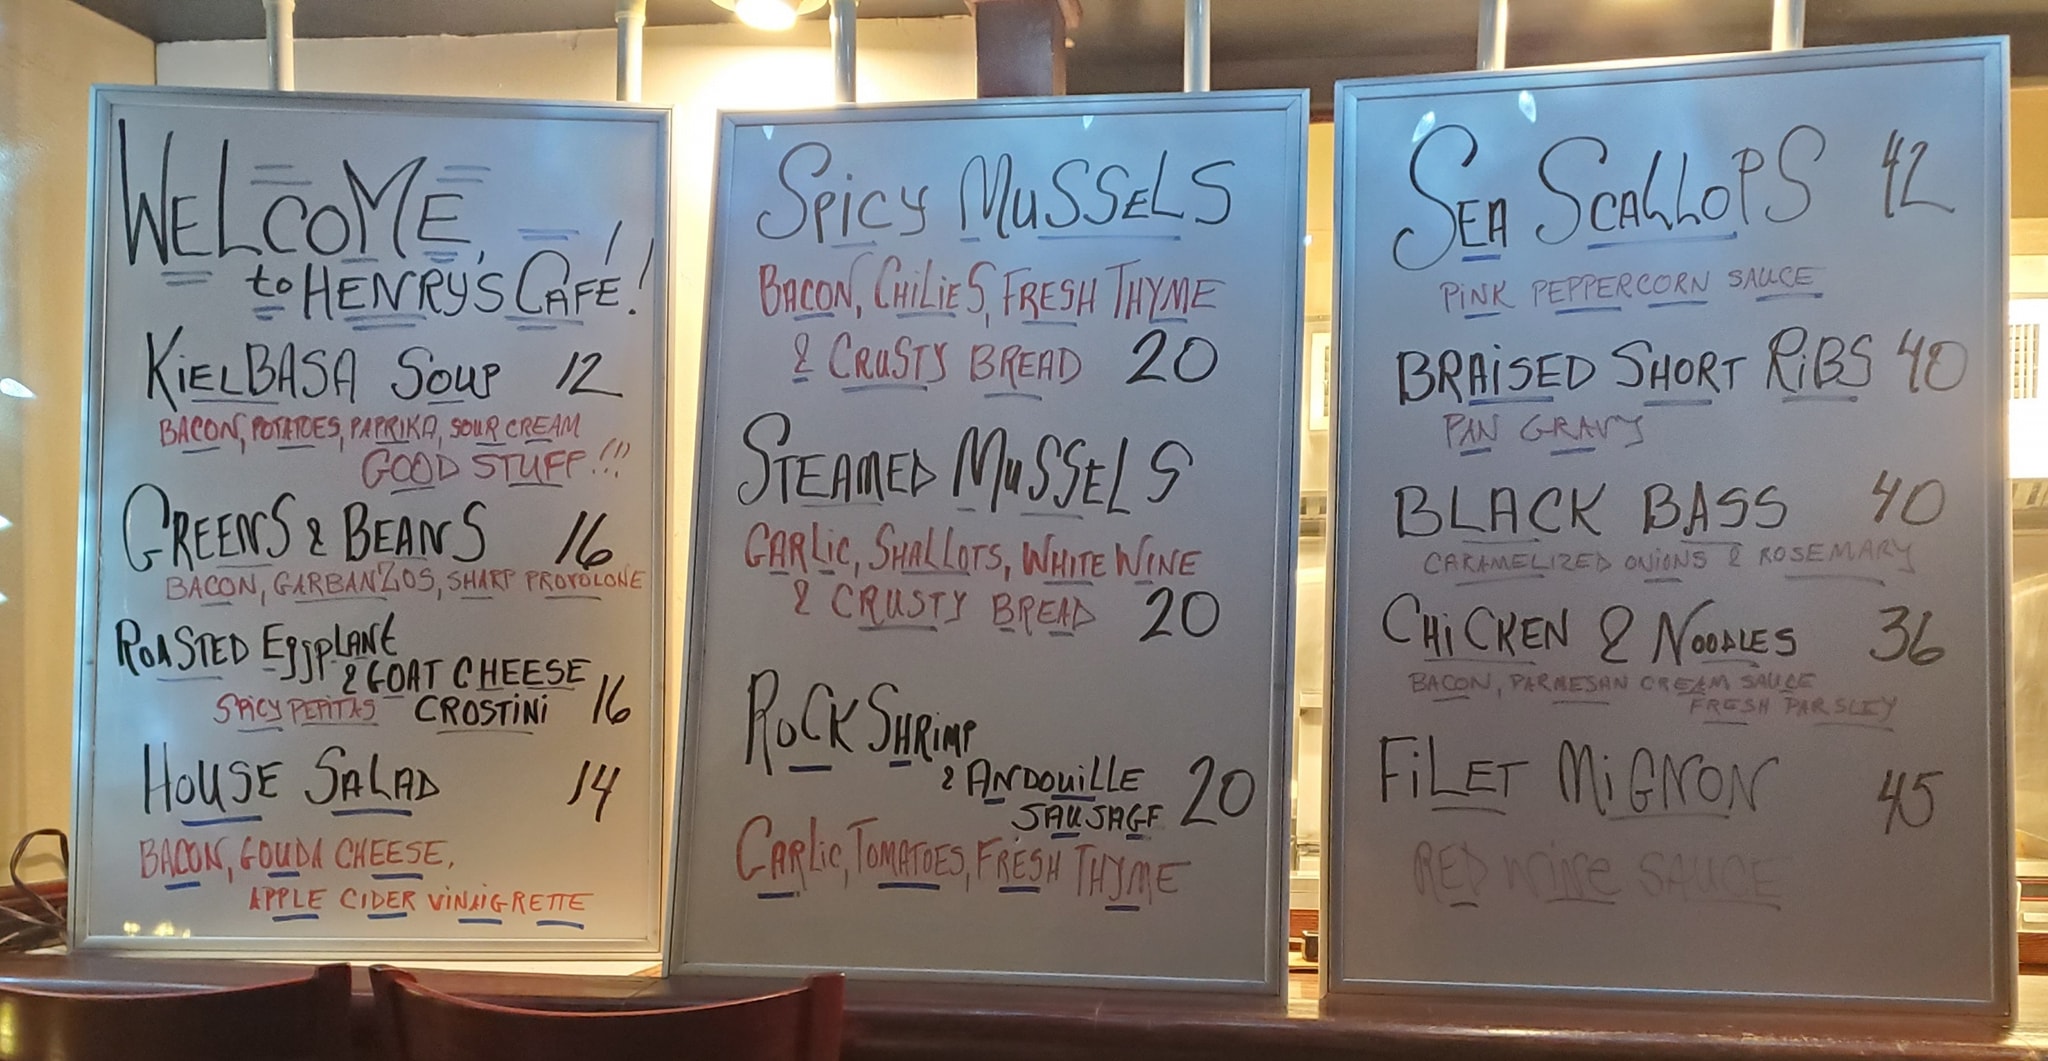 WELCOME,
to HENRY'S CAFÉ!
KIELBASA SOUP 12
BACON, POTATOES, PAPRIKA, SOUR CREAM
GOOD STUFF!!!
GREENS & BEANS 16
BACON, GARBANZOS, SHARP PROVOLONE
ROASTED EggPLANT
& GOAT CHEESE
SPICY PEPITAS CROSTINI 16
HOUSE SALAD 14
BACON, GOUDA CHEESE,
APPLE CIDER VINAIGRETTE
SPICY MUSSELS
BACON, CHILIES, FRESH THYME
& CRUSTY BREAD 20
STEAMED MUSSELS
GARLIC, SHALLOTS, WHITE WINE
& CRUSTY BREAD 20
ROCK SHRIMP
& ANDOUILLE
SAUSAGE 20
GARLIC, TOMATOES, FRESH THYME
SEA SCALLOPS 42
PINK PEPPERCORN SAUCE
BRAISED SHORT RIBS 40
PAN GRAVY
BLACK BASS 40
CARAMELIZED ONIONS & ROSEMARY
CHICKEN & NOODLES 36
BACON, PARMESAN CREAM SAUCE
FRESH PARSLEY
FILET MIGNON 45
RED WINE SAUCE